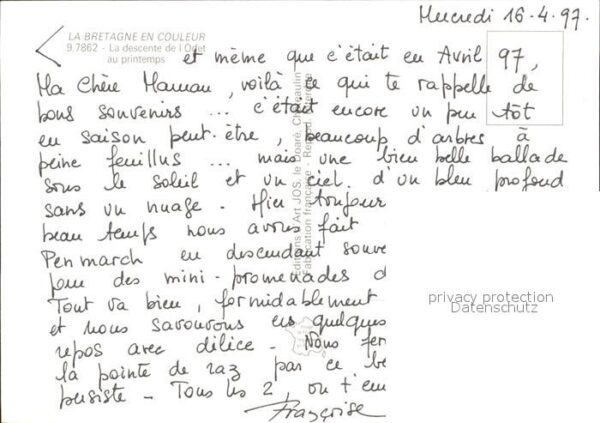 Mercredi 16.4.97.
LA BRETAGNE EN COULEUR
9.7862 - La descente de l'Odet
au printemps
et même que c'était en Avril 97,
Ma Chère Maman, voilà ce qui te rappelle de
bons souvenirs ... c'était encore un peu tôt
en saison peut-être, beaucoup d'arbres à
peine feuillus ... mais une bien belle ballade
sous le soleil et un ciel d'un bleu profond
sans un nuage. Hier toujour
beau temps nous avons fait
Penmarch en descendant souve
pour des mini-promenades d
Tout va bien, formidablement
et nous savourons ces quelques
repos avec délice. Nous fer
la pointe de raz par ce be
persiste - Tous les 2, on t'em
Françoise
Editions d'Art JOS, le Doaré, Châteaulin
Fabrication française - Reprod.
privacy protection
Datenschutz